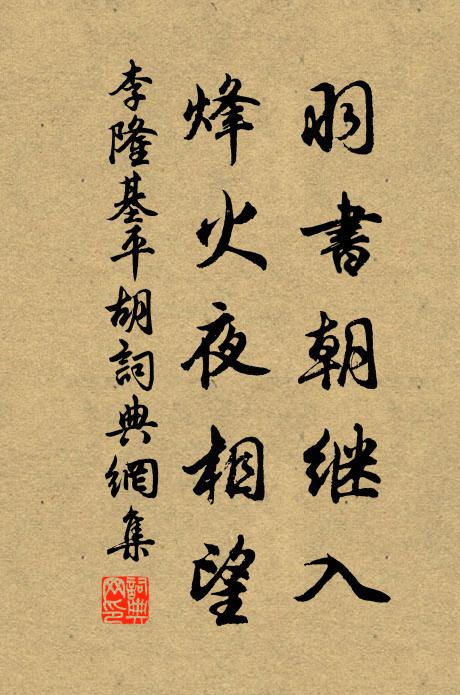 羽書朝継入
烽火夜相望
李隆基平胡詞典網集
詞典網印